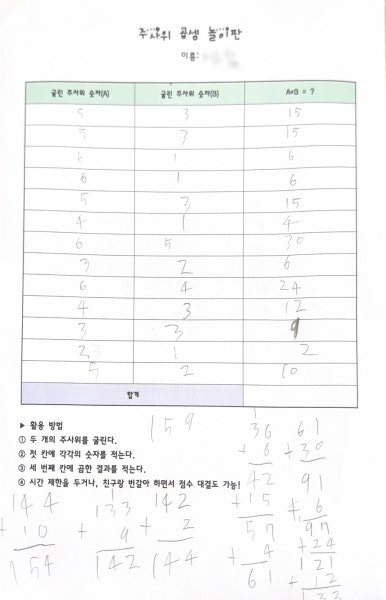 주사위 곱셈 놀이판
이름:
굴린 주사위 숫자(A) 굴린 주사위 숫자(B) A×B = ?
5 3 15
5 3 15
6 1 6
6 1 6
5 3 15
4 1 4
6 5 30
3 2 6
6 4 24
4 3 12
3 3 9
2 1 2
5 2 10
합계
▶ 활용 방법
① 두 개의 주사위를 굴린다.
② 첫 칸에 각각의 숫자를 적는다.
③ 세 번째 칸에 곱한 결과를 적는다.
④ 시간 제한을 두거나, 친구랑 번갈아 하면서 점수 대결도 가능!
159
1
36
+ 6
42
+15
57
+ 4
61
61
+30
91
+ 6
97
+24
121
+12
133
133
+ 9
142
142
+ 2
144
144
+ 10
154